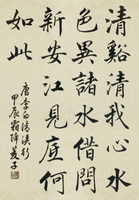 清谿清我心水
色異諸水借問
新安江見底何
如此
唐李白清溪行
甲辰霜降